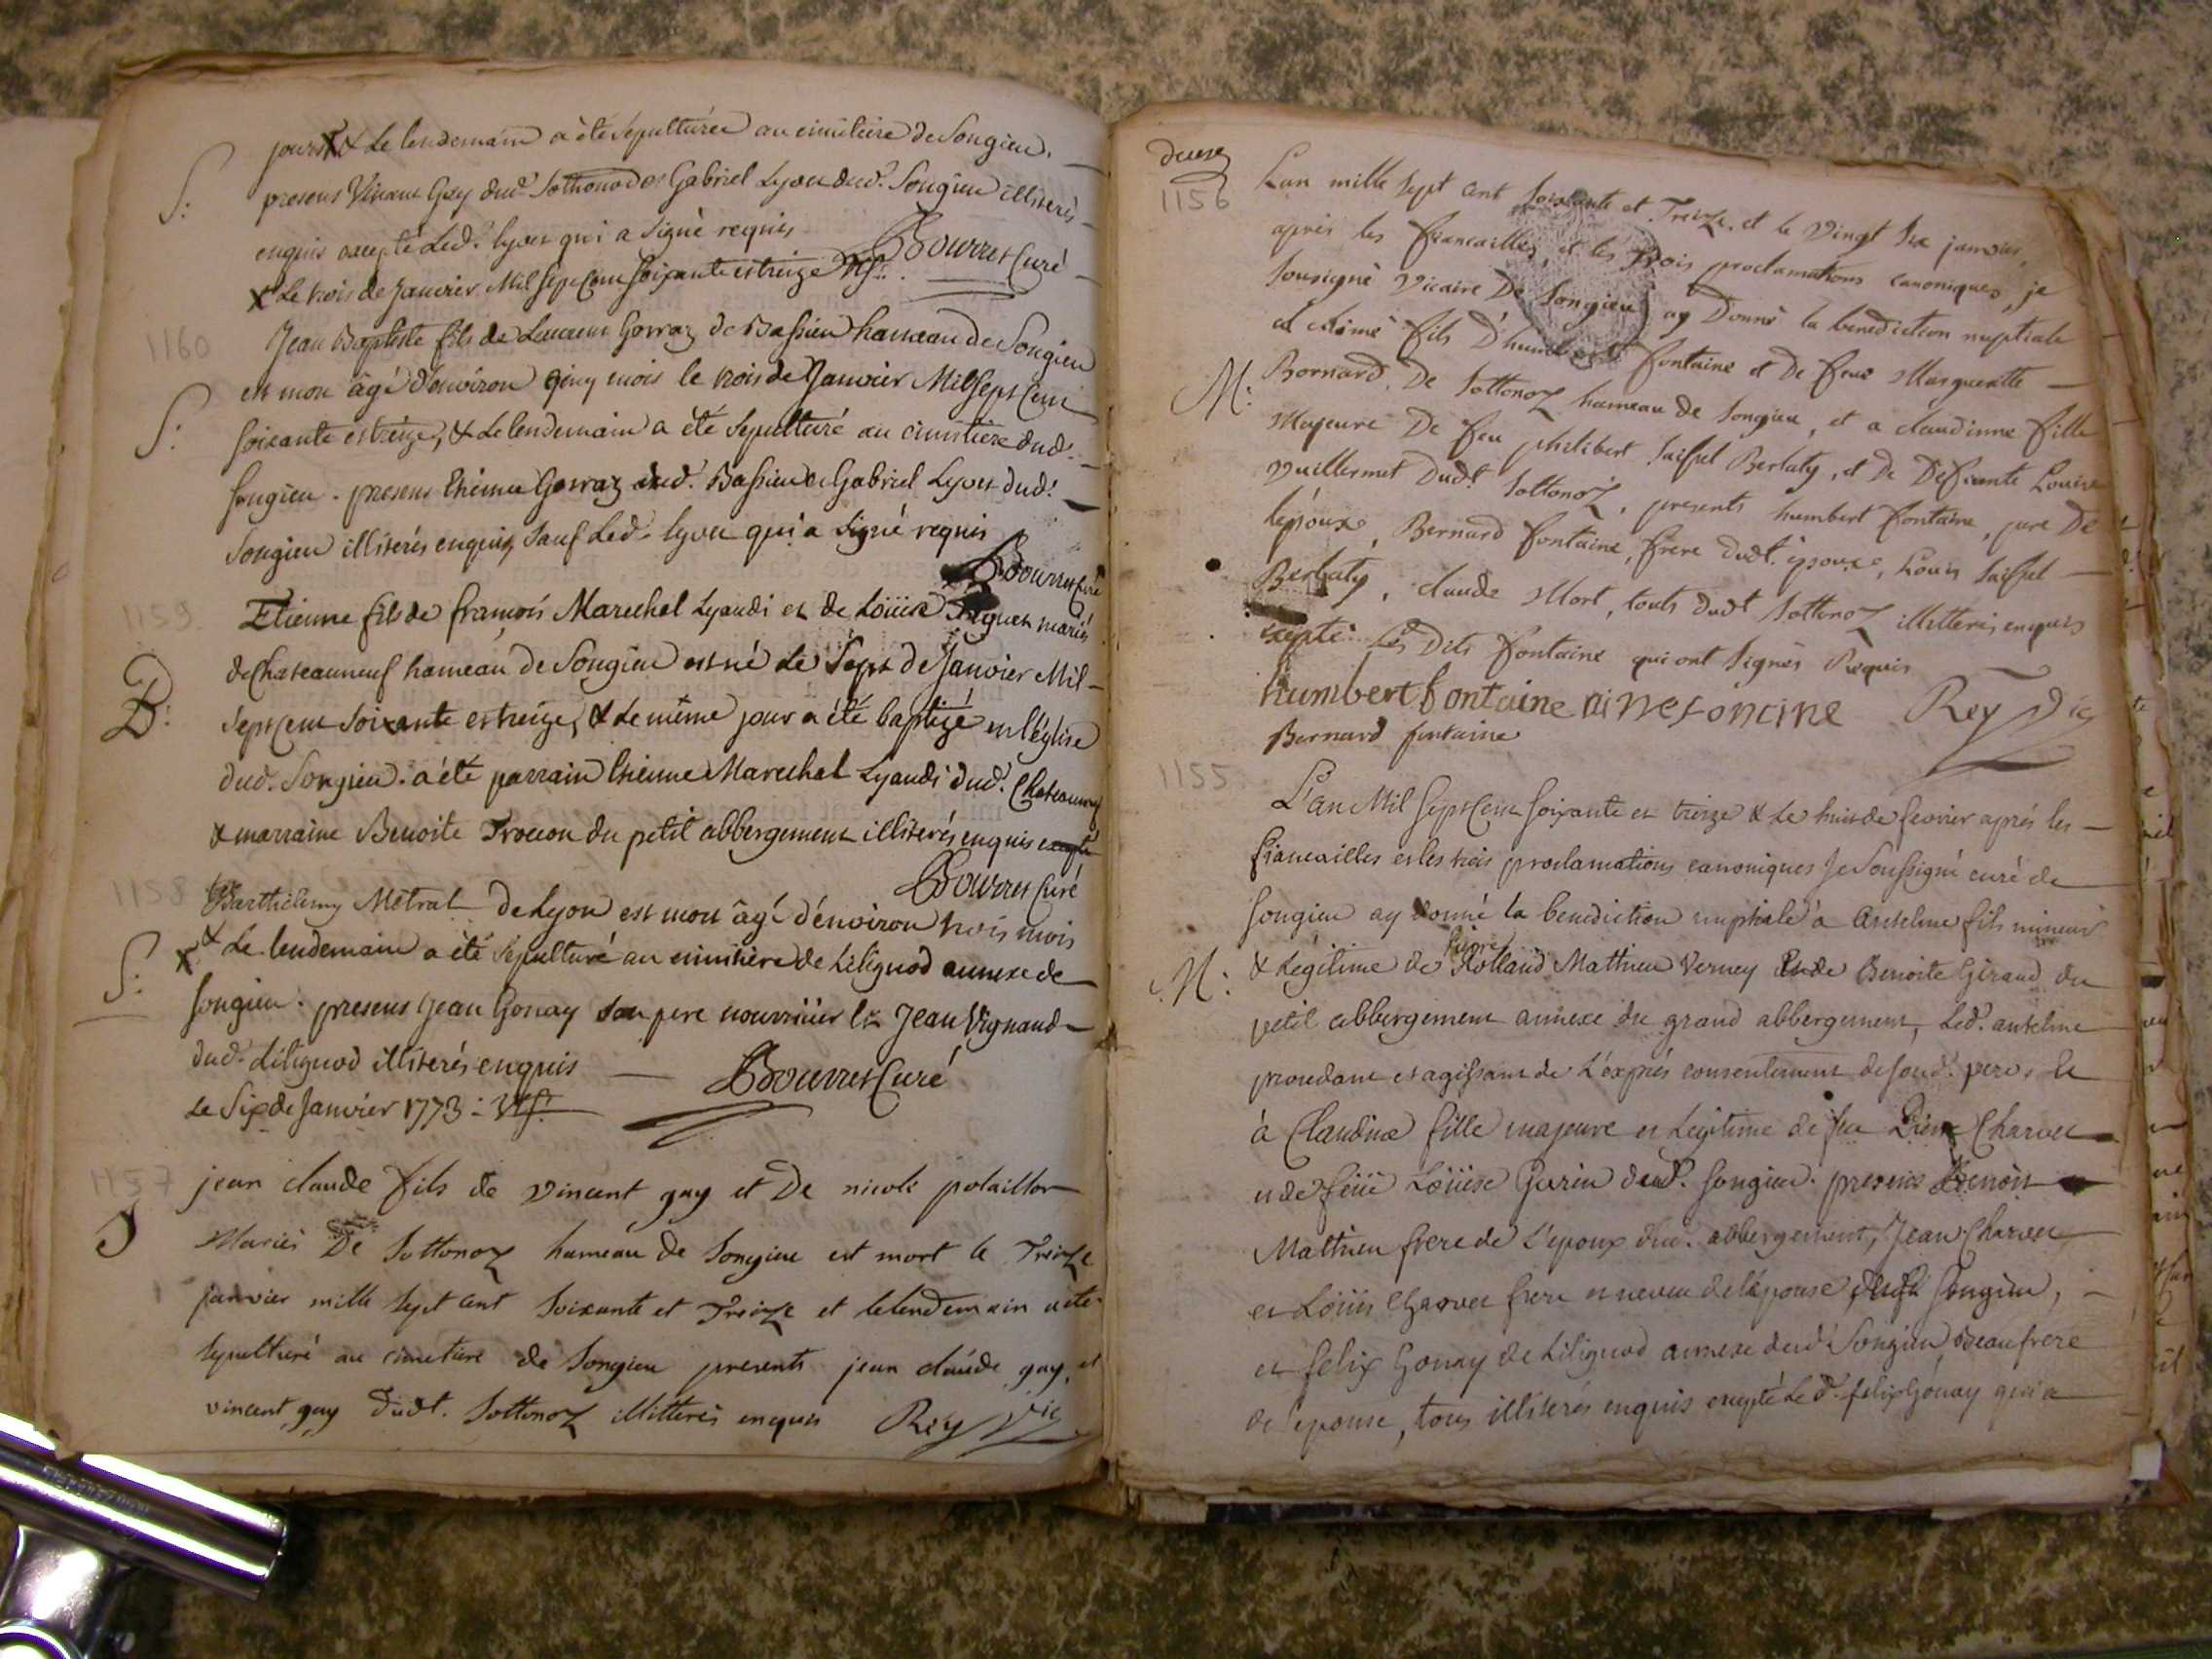 jours X & Le lendemain a été sépulturée au cimitiere de Songieu.
S: presens Vincent Gay dud. Sothonod et Gabriel Lyvet dud. Songieu illiterés
enquis excepté Led. lyvet qui a signé requis Bourret Curé
X Le trois de Janvier Mil Sept Cent soixante et treize
1160 Jean Baptiste fils de Laurent Gorraz de Bassieu hameau de Songieu
est mort âgé d'environ cinq mois le trois de Janvier Mil Sept Cent
S: soixante et treize, & Le lendemain a été sepulturé au cimitiere dud.
songieu. presens Etienne Gorraz dud. Bassieu et Gabriel Lyvet dud.
Songieu illiterés enquis, sauf Led. lyvet qui a signé requis
Bourret Curé
1159 Etienne fils de francois Marechal Lyaudi et de Loüise mariés
de Chateauneuf hameau de Songieu est né Le Sept de Janvier Mil
B: Sept Cent Soixante et treize, & Le même jour a été baptizé en l'église
dud. Songieu. a été parrain Etienne Marechal Lyaudi dud. Chateauneuf
& marraine Benoite Trocon du petit abbergement illiterés enquis excepté
Bourret Curé
1158 Barthelemy Métral de Lyon est mort âgé d'environ trois mois
S: X & Le lendemain a été sépulturé au cimitiere de Lilignod annexe de
songieu. presens Jean Gonay son pere nourricier & Jean Vignand
dud. Lilignod illiterés enquis Bourret Curé
Le Six de Janvier 1773:
1157 jean claude fils de vincent gay et De nicole polaillon
S Mariés De Sottonoz hameau de Songieu est mort le Treize
janvier mille Sept cent Soixante et Treize et le lendemain a été
Sepulturé au cimetiere de Songieu presents jean claude gay, et
vincent gay dudt. Sottonoz illitterés enquis Rey Vic
deuxe
1156 L'an mille Sept cent soixante et Treize, et le vingt Six janvier,
après les fiancailles, et les trois proclamations canoniques, je
Sousigné vicaire De Songieu ay Donné la benediction nuptiale
a Aimé fils D'humbert fontaine et De feue Marguerite
M: Bornard, De Sottonoz hameau de Songieu, et a claudinne fille
Majeure De feu philibert Saissel Berlaty, et De Deffunte Louise
vuillermet Dudt Sottonoz, presents humbert fontaine, pere De
l'époux, Bernard fontaine, frere dudt. époux, Louis Saissel
Berlaty, claude Mort, touts dudt Sottonoz illitteris enquis
excepté Les Dits fontaine qui ont Signés Requis
humbert fontaine aime fontaine Rey Vic
Bernard fontaine
1155 L'an Mil Sept Cent soixante et treize & Le huit de fevrier aprés les
fiancailles et les trois proclamations canoniques Je Soussigné curé de
songieu ay donné la benediction nuptiale à Anselme fils mineur
M: & Légitime de Rolland Mathieu Verney & de Benoite Giraud du
petit abbergement annexe du grand abbergement, Led. anselme
procedant et agissant de L'éxprés consentement de soud. pere, &
à Claudine fille majeure et Légitime de feu Pierre Charvet
et de feüe Loüise Gurin dud. songieu. presens Benoit
Mathieu frere de L'epoux dud. abbergement, Jean Charvet
et Loüis Charvet frere et neveu de l'épouse, dud. Songieu,
et felix Gonay de Lilignod annexe dud. Songieu beaufrere
de l'epouse, tous illiterés enquis excepté Le d. felix Gonay qui a